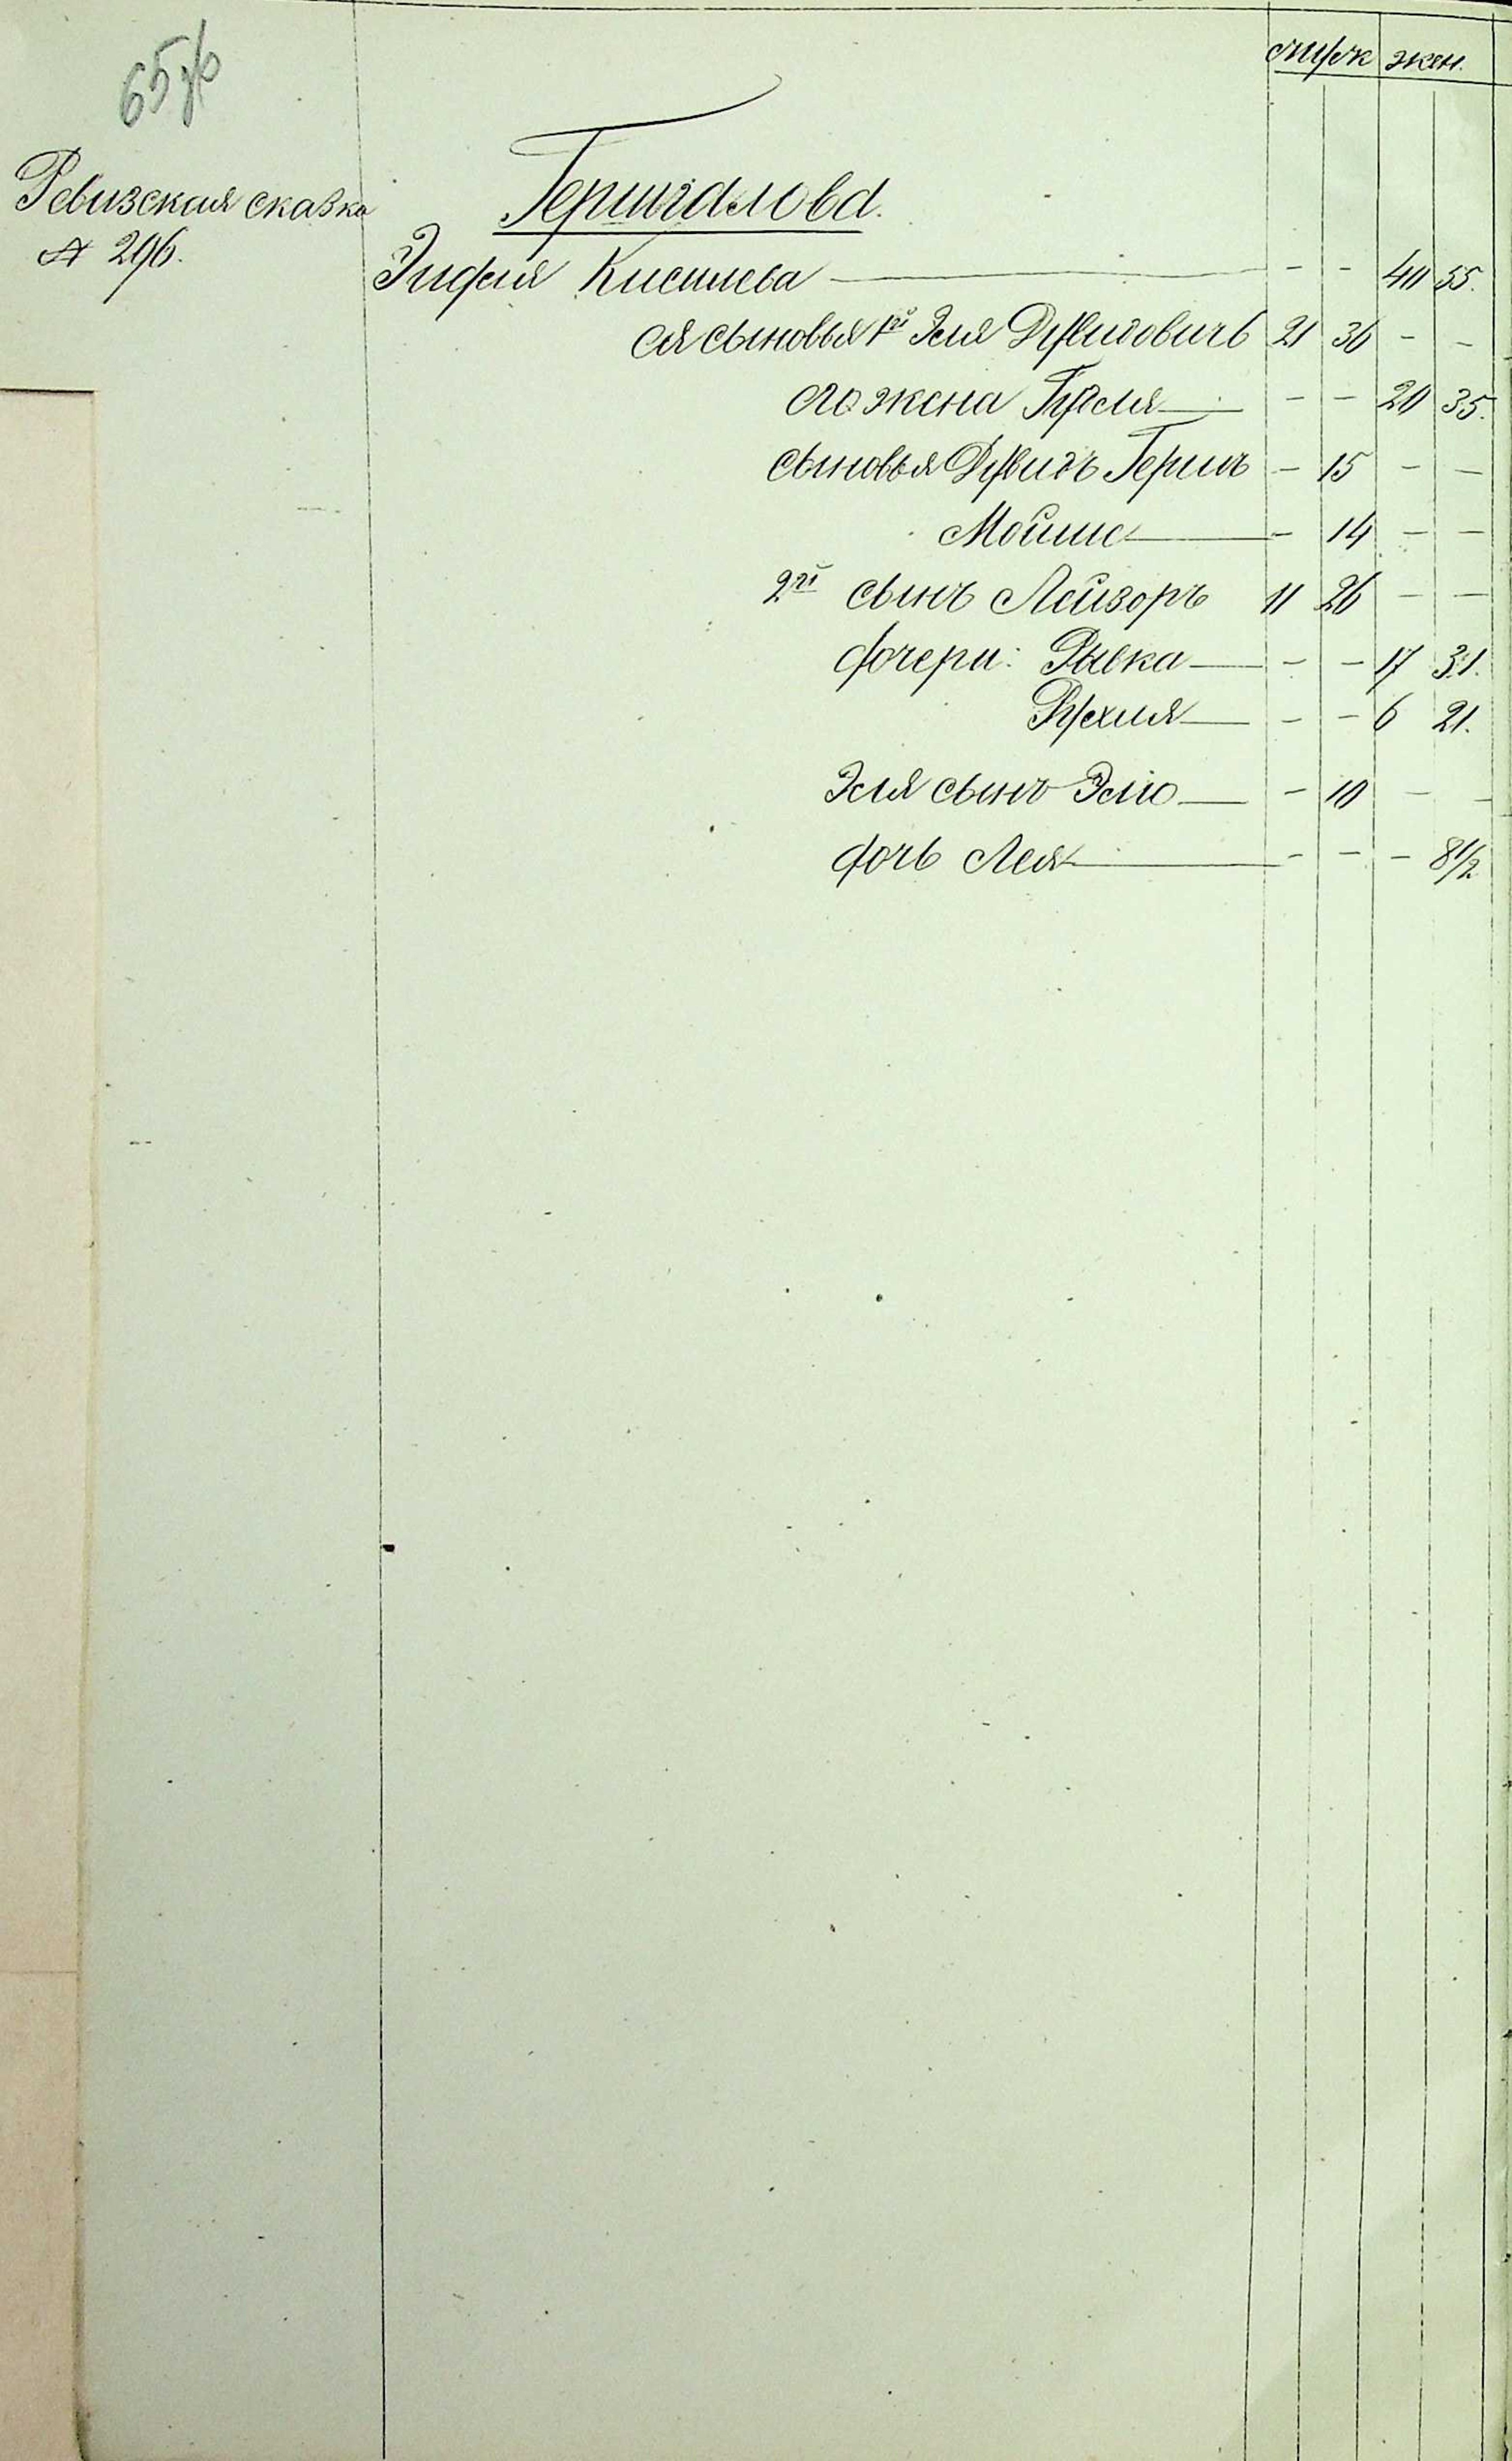 муж. жен.
65 об
Ревизская сказка
№ 296.
Гершгалова.
Энфея Кисилева — - - 40 55.
ея сыновья 1й Эля Давидовичъ 21 36 - -
его жена Груня — - - 20 35.
сыновья Давидъ Гершъ - 15 - -
Мойше — - 14 - -
2й сынъ Лейзоръ 11 26 - -
дочери: Рывка — - - 17 31.
Рухля — - - 6 21.
Эля сынъ Элю — - 10 - -
дочь Лея — - - - 8½